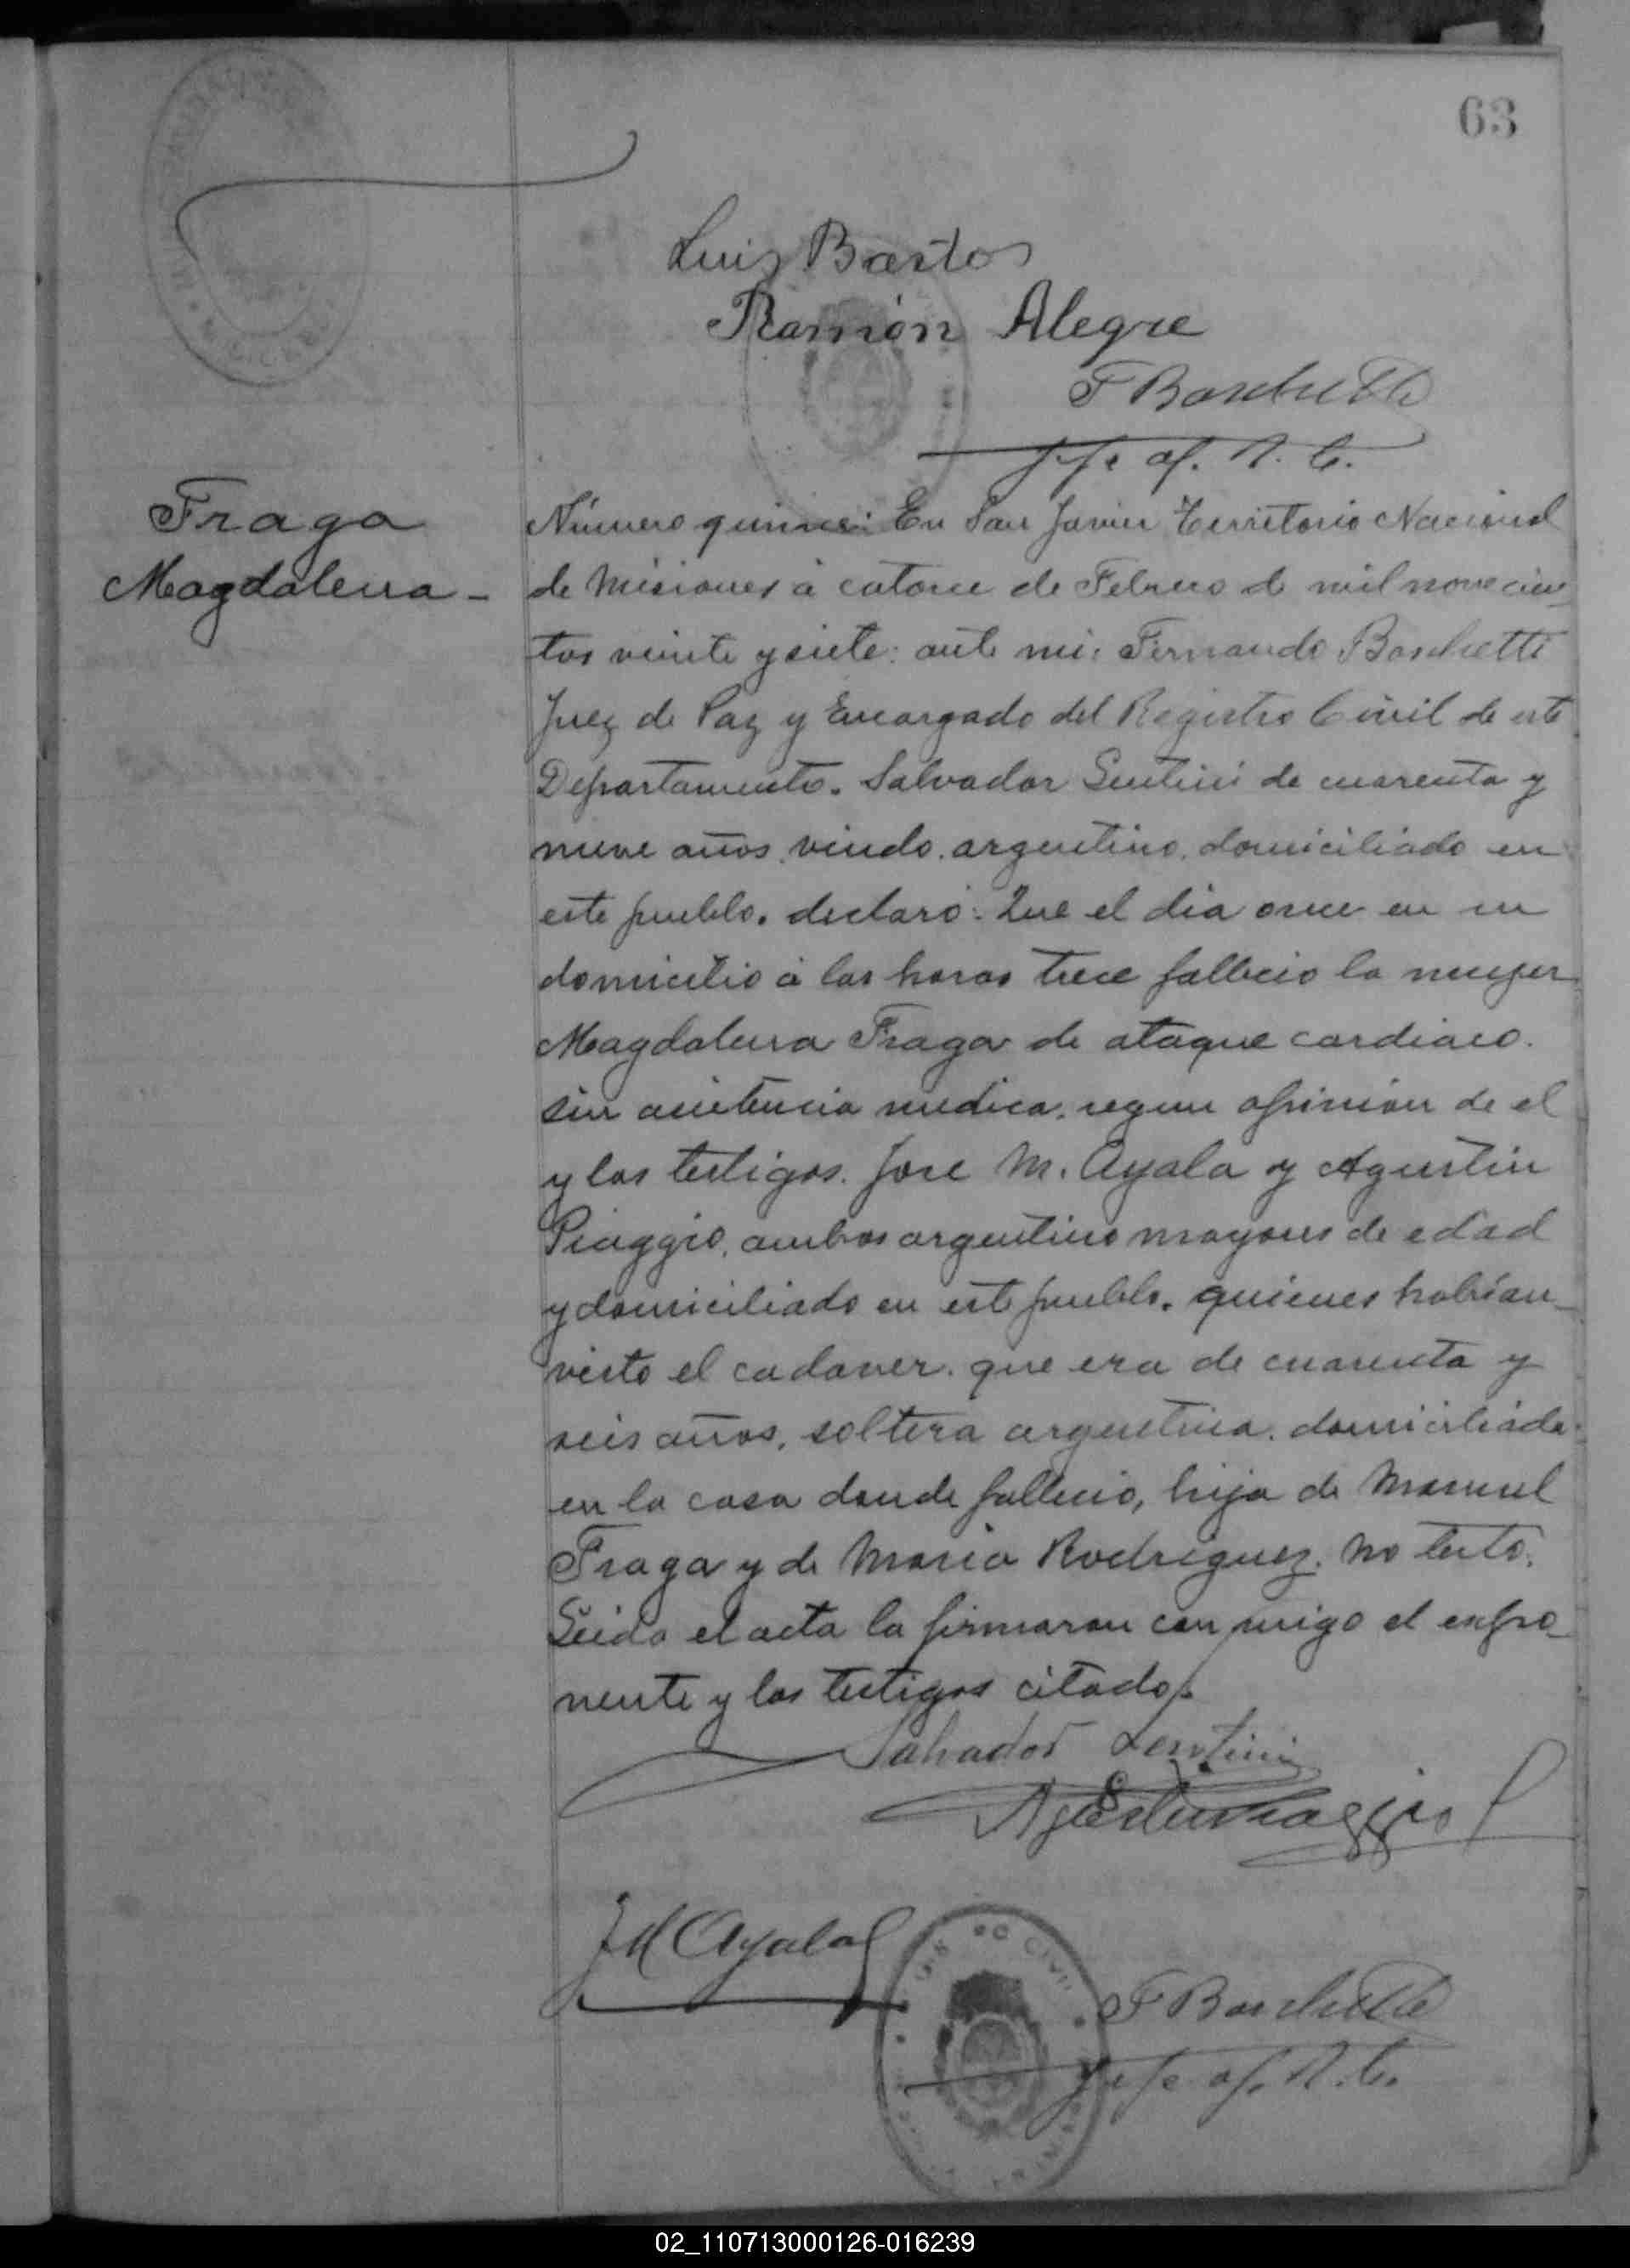 63
Luis Bastos
Ramón Alegre
F Boschetti
Jefe of. R. C.
Fraga
Magdalena -
Número quince: En San Javier Territorio Nacional
de Misiones à catorce de Febrero de mil novecien-
tos veinte y siete: ante mi: Fernando Boschetti
Juez de Paz y Encargado del Registro Civil de este
Departamento. Salvador Lentini de cuarenta y
nueve años, viudo, argentino, domiciliado en
este pueblo. declaró: Que el dia once en su
domicilio à las horas trece fallecio la mujer
Magdalena Fraga de ataque cardiaco.
sin asistencia medica, segun opinión de el
y los testigos. Jose M. Ayala y Agustin
Piaggio, ambos argentino mayores de edad
y domiciliado en este pueblo. quienes habian
visto el cadaver. que era de cuarenta y
seis años, soltera argentina, domiciliada
en la casa donde fallecio, hija de Manuel
Fraga y de Maria Rodriguez. No testó.
Leida el acta la firmaron con migo el expo-
nente y los testigos citados.
Salvador Lentini
Agustin Piaggio
J M Ayala
F Boschetti
Jefe of. R. C.
02_110713000126-016239